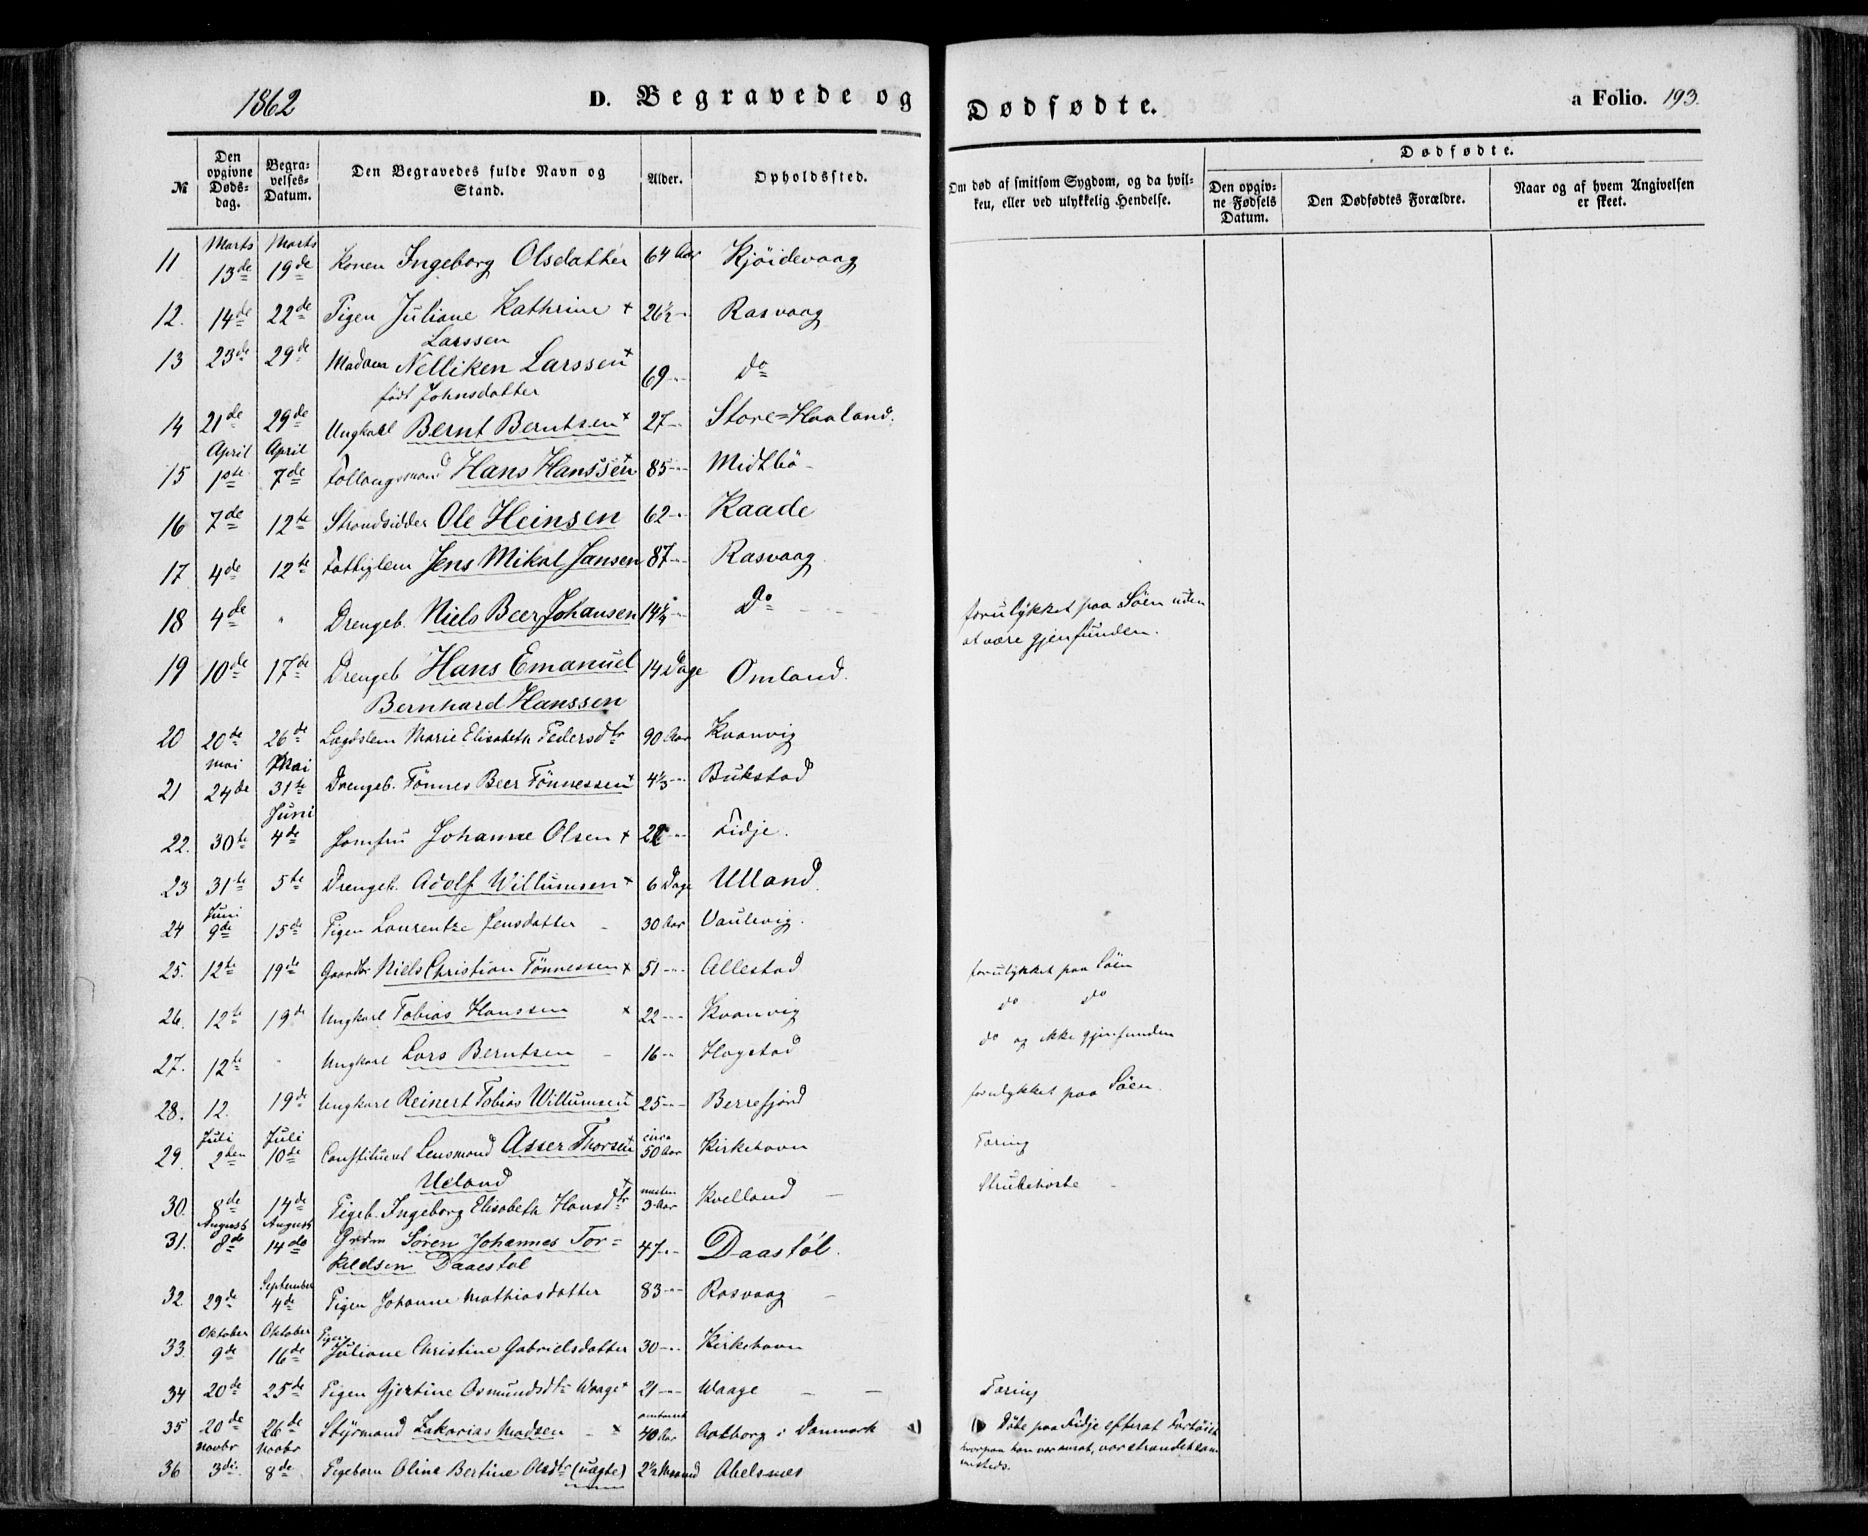 1862 D. Begravede og Dødfødte. a Folio. 193.
№ Den opgivne Døds-dag. Begra-velses-Datum. Den Begravedes fulde Navn og Stand. Alder. Opholdssted. Om død af smitsom Sygdom, og da hvil-ken, eller ved ulykkelig Hendelse. Dødfødte. Den opgiv-ne Fødsels Datum. Den Dødfødtes Forældre. Naar og af hvem Angivelsen er skeet.
Marts Marts
11 13de 19de Konen Ingeborg Olsdatter 64 Aar Kjöidevaag
12. 14de 22de Pigen Juliane Kathrine + 26½ Rasvaag
Larssen
13 23de 29de Madam Nelliken Larssen + 69 do
födt Johnsdatter
14 21de 29de Ungkarl Bernt Berntsen + 27 Store=Haaland.
April April
15 1ste 7de Follaugsmand Hans Hanssen + 85 Midtbö
16 7de 12te Strandsidder Ole Heinsen 62 Raade
17 4de 12te Fattiglem Jens Mikal Jansen 87 Rasvaag
18 4de " Drengeb. Niels Beer Johansen 14½ Do forulykket paa Söen uden
at være gjenfunden.
19 10de 17de Drengeb Hans Emanuel 14 Dage Omland.
Bernhard Hanssen
20 20de 26de Lægdslem Marie Elisabeth Pedersdtr 90 Aar Kvanvig
Mai Mai
21 24de 31te Drengeb. Tönnes Beer Tönnessen + 4⅓ Bukstad
Juni
22. 30te 4de Jomfru Johanne Olsen + Fidje.
23 31te 5te Drengeb. Adolf Willumsen + 6 Dage Ulland.
Juni
24 9de 15de Pigen Laurentze Jensdatter 30 Aar Vaulevig.
25. 12te 19de Gaardbr Niels Christian Tönnessen + 51 Allestad forulykket paa Söen
26. 12te 19de Ungkarl Tobias Hanssen + 22 Kvanvig do do
27. 12te " Ungkarl Lars Berntsen 16 Hagstad do og ikke gjenfunden
28. 12. 19de Ungkarl Reinert Tobias Willumsen 25 Berrefjord forulykket paa Söen.
Juli Juli circa
29. 2den 10de Constitueret Lensmand Asser Thorsen + 50 Aar Kirkehavn Tæring
Ueland
30. 8de 14de Pigeb. Ingeborg Elisabeth Hansdtr + næsten 3 Aar Kvelland Strubehoste
August August
31. 8de 14de Grdm Sören Johannes Tor= 47 Daastöl.
keldsen Daaestöl
September
32. 29de 4de Pigen Johanne Mathiasdatter 83 Rasvaag
Oktober Oktober Pigen
33. 9de 16de Juliane Christine Gabrielsdatter 30 Kirkehavn
34 20de 25de Pigen Gjertine Osmundsdtr Waage + 21 Waage Tæring
35 20de 26de Styrmand Zakarias Madsen + omtrent 40 Aar Aalborg i Danmark Döde paa Fidje efterat Fartöiet
hvorpaa han var ansat, var strandet sam-
mesteds.
Novbr Novbr
36 3die 8de Pigebarn Oline Bertine Olsdtr (uægte) 2½ Maaned Abelsnæs